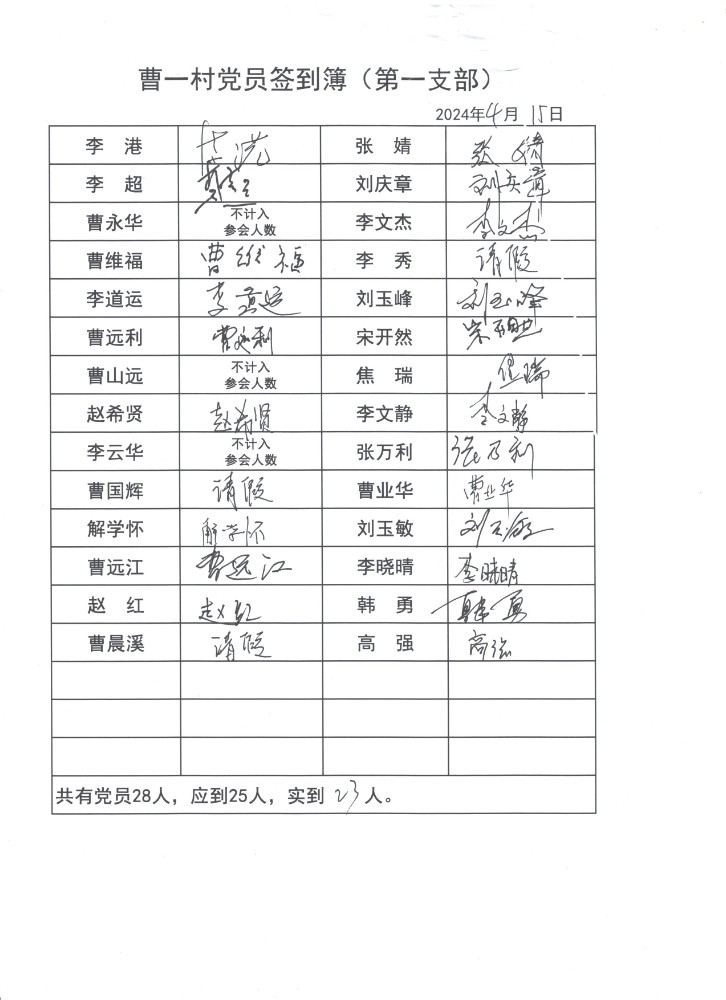 曹一村党员签到簿（第一支部）
2024年4月15日
李 港 李港 张 婧 张婧
李 超 李超 刘庆章 刘庆章
曹永华 不计入 参会人数 李文杰 李文杰
曹维福 曹维福 李 秀 请假
李道运 李道运 刘玉峰 刘玉峰
曹远利 曹远利 宋开然 宋开然
曹山远 不计入 参会人数 焦 瑞 焦瑞
赵希贤 赵希贤 李文静 李文静
李云华 不计入 参会人数 张万利 张万利
曹国辉 请假 曹业华 曹业华
解学怀 解学怀 刘玉敏 刘玉敏
曹远江 曹远江 李晓晴 李晓晴
赵 红 赵红 韩 勇 韩勇
曹晨溪 请假 高 强 高强
共有党员28人，应到25人，实到 23 人。